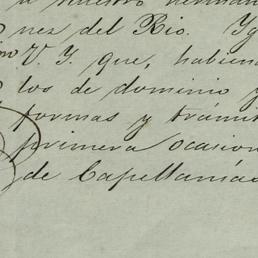 a nuestro herman
nez del Rio. Ig
V. I. que, habien
los de dominio y
formas y trámit
primera ocasion
de Capellanías